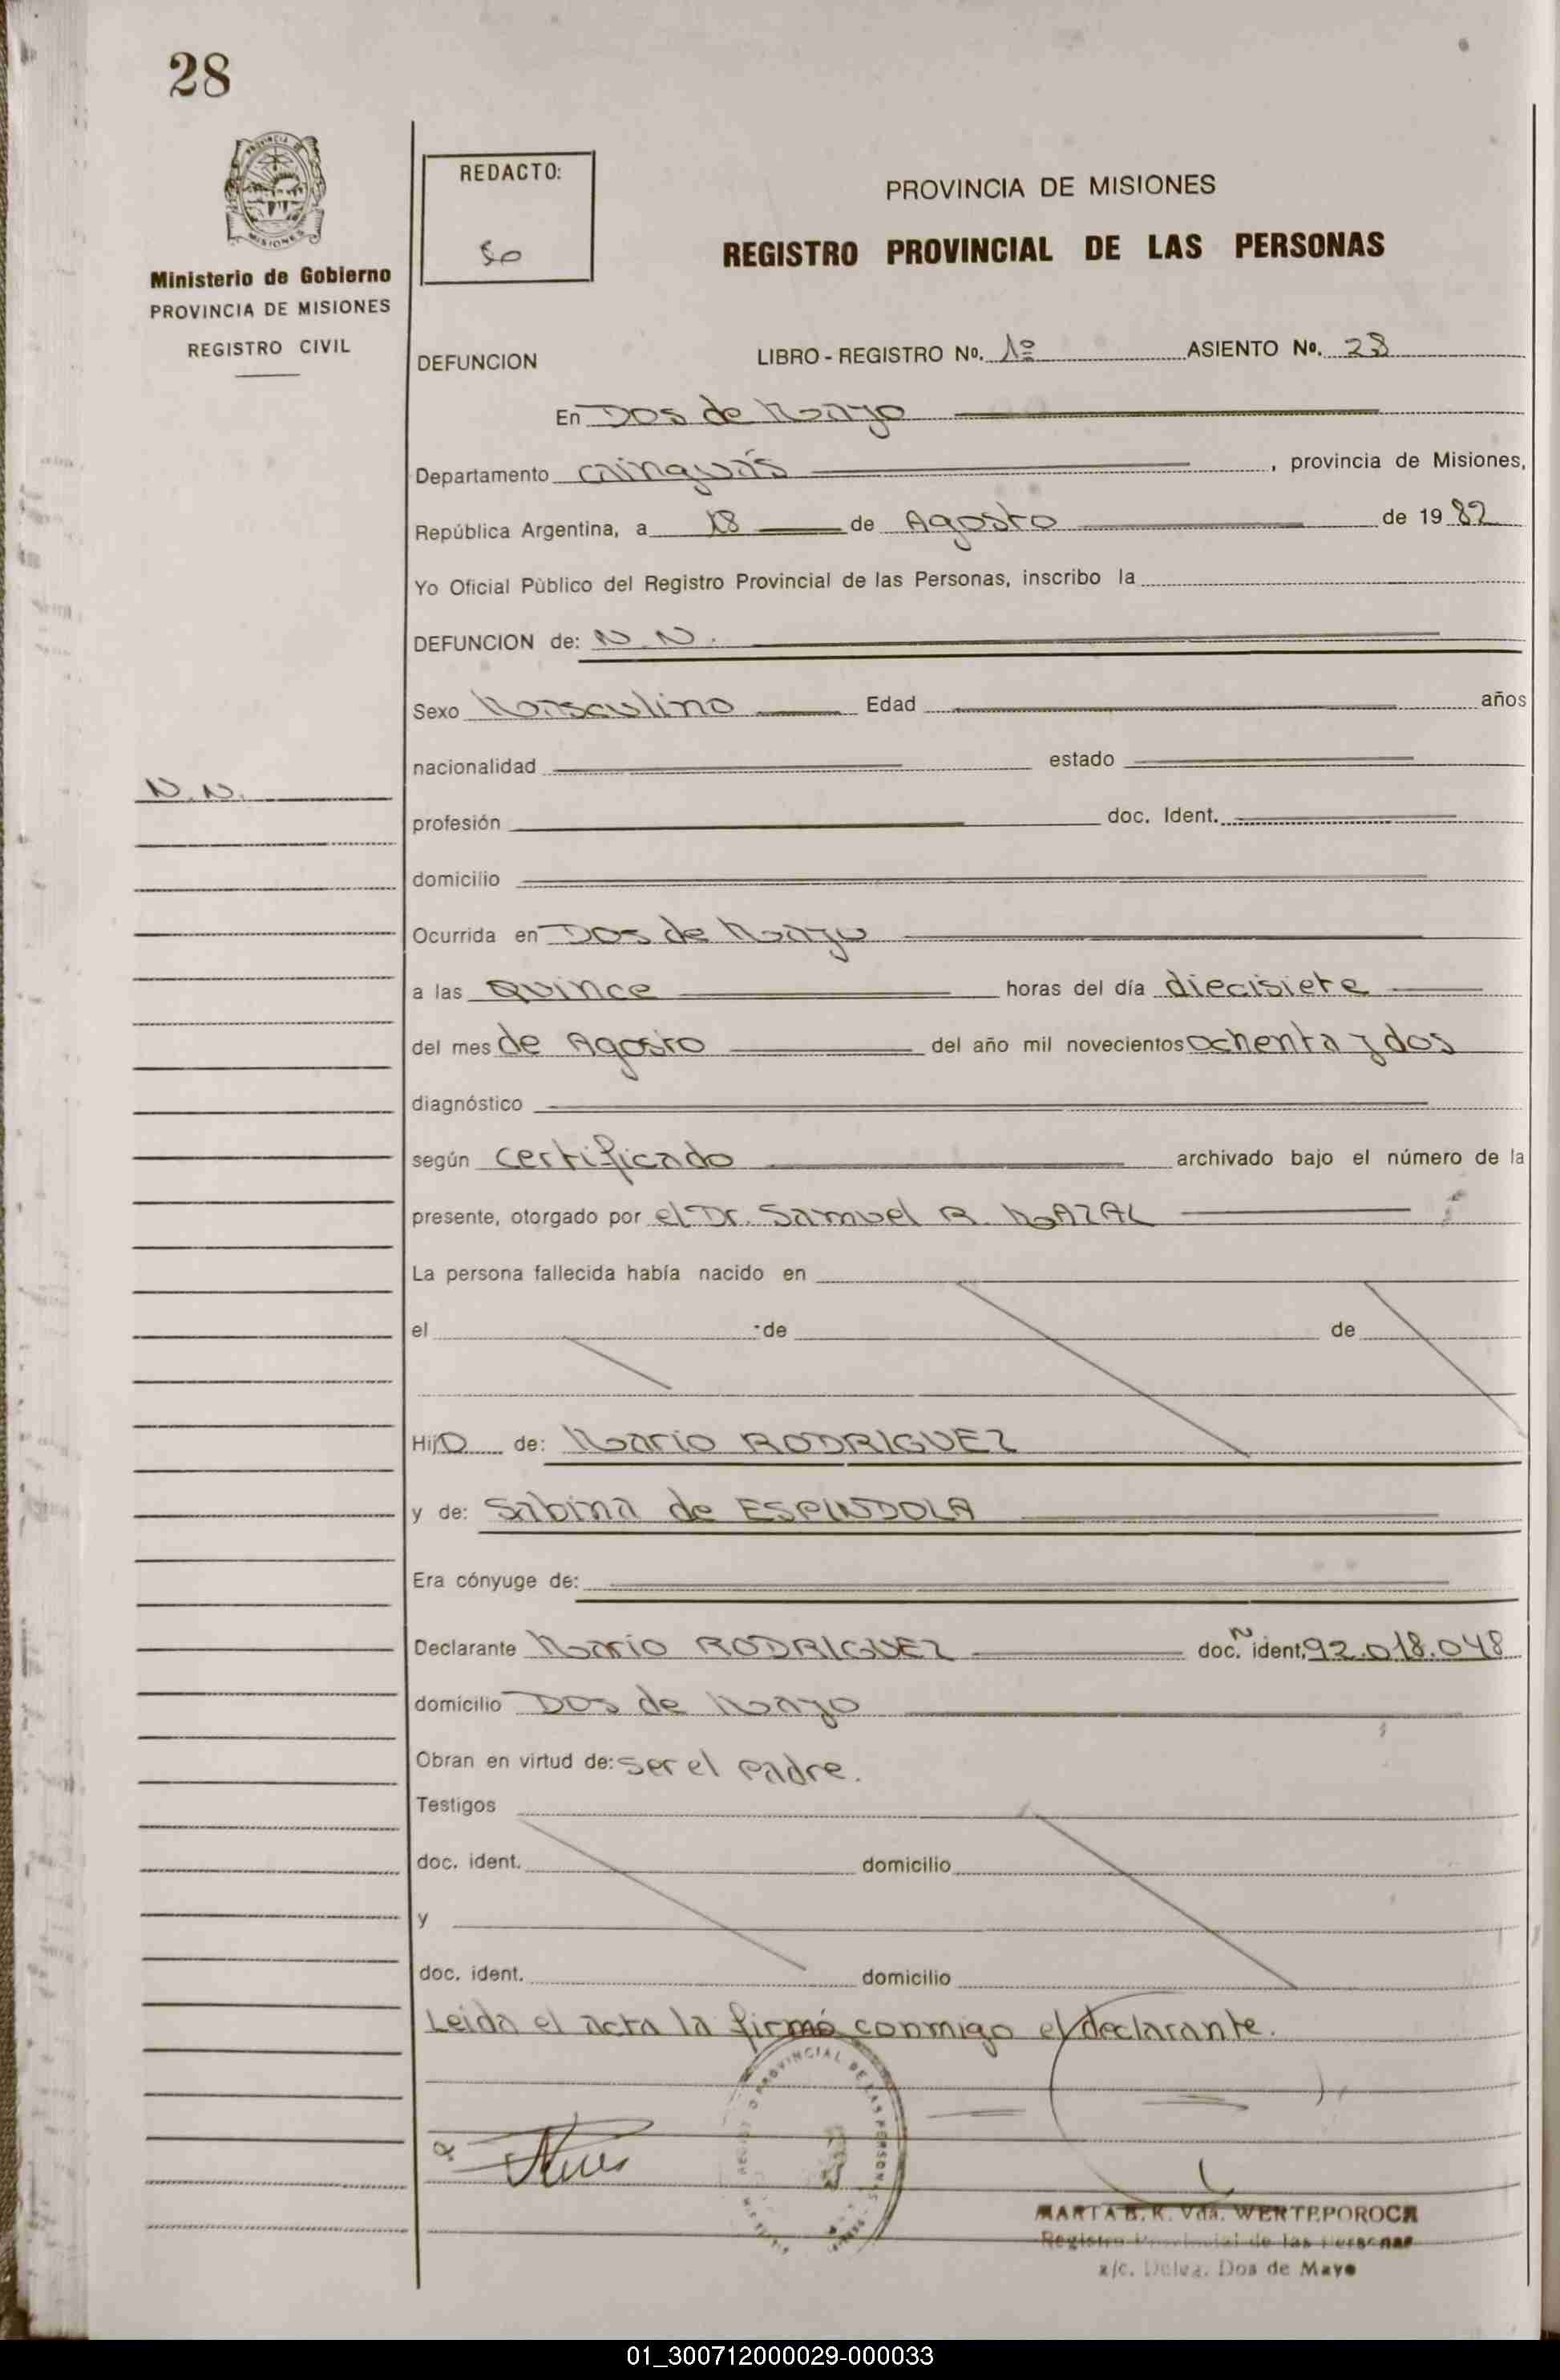 28
PROVINCIA DE
MISIONES
Ministerio de Gobierno
PROVINCIA DE MISIONES
REGISTRO CIVIL
REDACTO:
PROVINCIA DE MISIONES
REGISTRO PROVINCIAL DE LAS PERSONAS
DEFUNCION LIBRO - REGISTRO Nº. 1º ASIENTO Nº. 28
En Dos de Mayo
Departamento Cainguás, provincia de Misiones,
República Argentina, a 18 de Agosto de 1982
Yo Oficial Pùblico del Registro Provincial de las Personas, inscribo la
DEFUNCION de: N. N.
Sexo Masculino Edad años
nacionalidad estado
N. N.
profesión doc. Ident.
domicilio
Ocurrida en Dos de Mayo
a las Quince horas del día diecisiete
del mes de Agosto del año mil novecientos ochenta y dos
diagnóstico
según certificado archivado bajo el número de la
presente, otorgado por el Dr. Samuel R. MAZAL
La persona fallecida había nacido en
el de de
Hijo de: Mario RODRIGUEZ
y de: Sabina de ESPINDOLA
Era cónyuge de:
Declarante Mario RODRIGUEZ doc. N ident. 92.018.048
domicilio Dos de Mayo
Obran en virtud de: ser el padre.
Testigos
doc. ident. domicilio
y
doc. ident. domicilio
Leida el acta la firmó conmigo el declarante.
PROVINCIAL DE LAS PERSONAS
MARTA B. R. Vda. WERTEPOROCH
Registro Provincial de las Personas
a/c. Deleg. Dos de Mayo
01_300712000029-000033